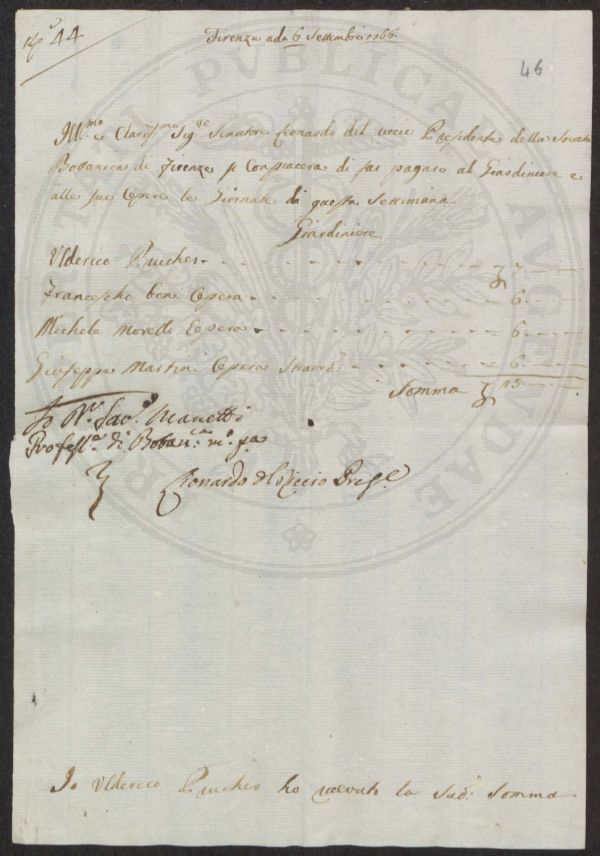 N° 44
Firenze adì 6 Settembre 1766
46
Ill.mo e Clariss.mo Sig.re Senatore Leonardo del riccio Presidente della Società
Bottanica di Firenze si Compiacera di far pagare al Giardiniere e
alle sue Opere le Giornate di questa Settimana
Giardiniere
Ulderico Prucher 7
Francescho beni Opera 6
Michele Moretti Opera 6
Giuseppe Martini Opera Straord. 6
Somma
Io Sav. Manetti
Profess.e di Botan.ca m.o pa
Leonardo del Riccio Pres.e
Io Ulderico Prucher ho ricevuto la Sud.a Somma